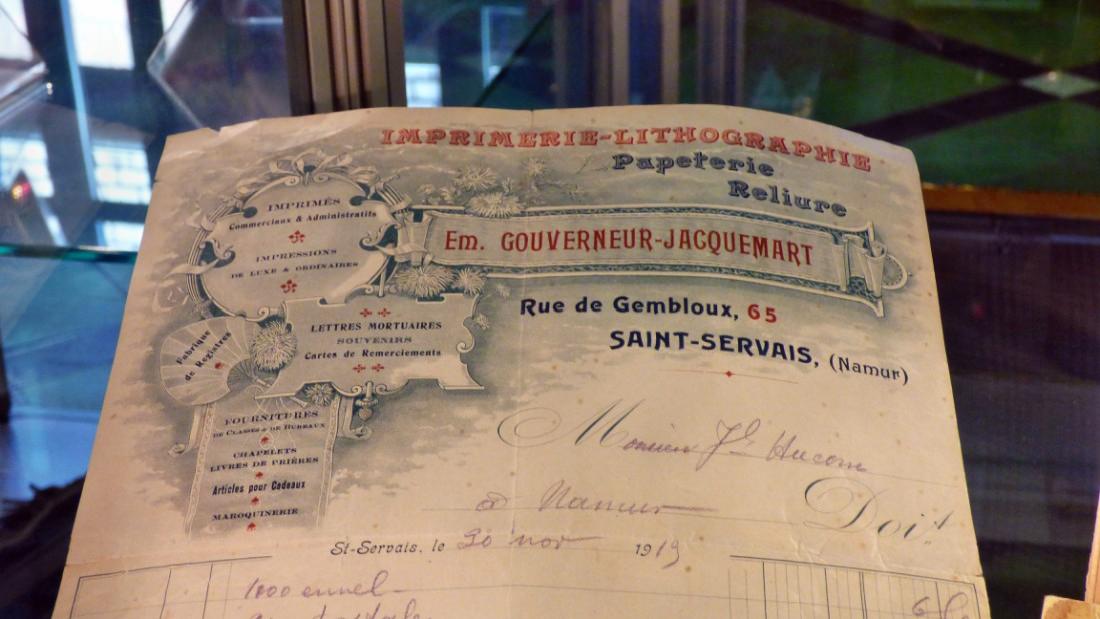 IMPRIMERIE-LITHOGRAPHIE
Papeterie
Reliure
Em. GOUVERNEUR-JACQUEMART
Rue de Gembloux, 65
SAINT-SERVAIS, (Namur)
IMPRIMÉS
Commerciaux & Administratifs
IMPRESSIONS
DE LUXE & ORDINAIRES
LETTRES MORTUAIRES
SOUVENIRS
Cartes de Remerciements
Fabrique
de Registres
FOURNITURES
DE CLASSES & DE BUREAUX
CHAPELETS
LIVRES DE PRIÈRES
Articles pour Cadeaux
MAROQUINERIE
Monsieur
à Namur
Doit
St-Servais, le 20 nov 1919
1000